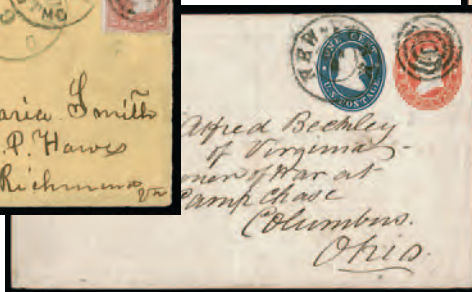 MO
aria Smith
.P. Hawes
Richmond
Va
NEW-
ONE CENT
U.S. POSTAGE
Alfred Beckley
of Virginia-
oner of War at-
Camp Chase
Columbus.
Ohio.